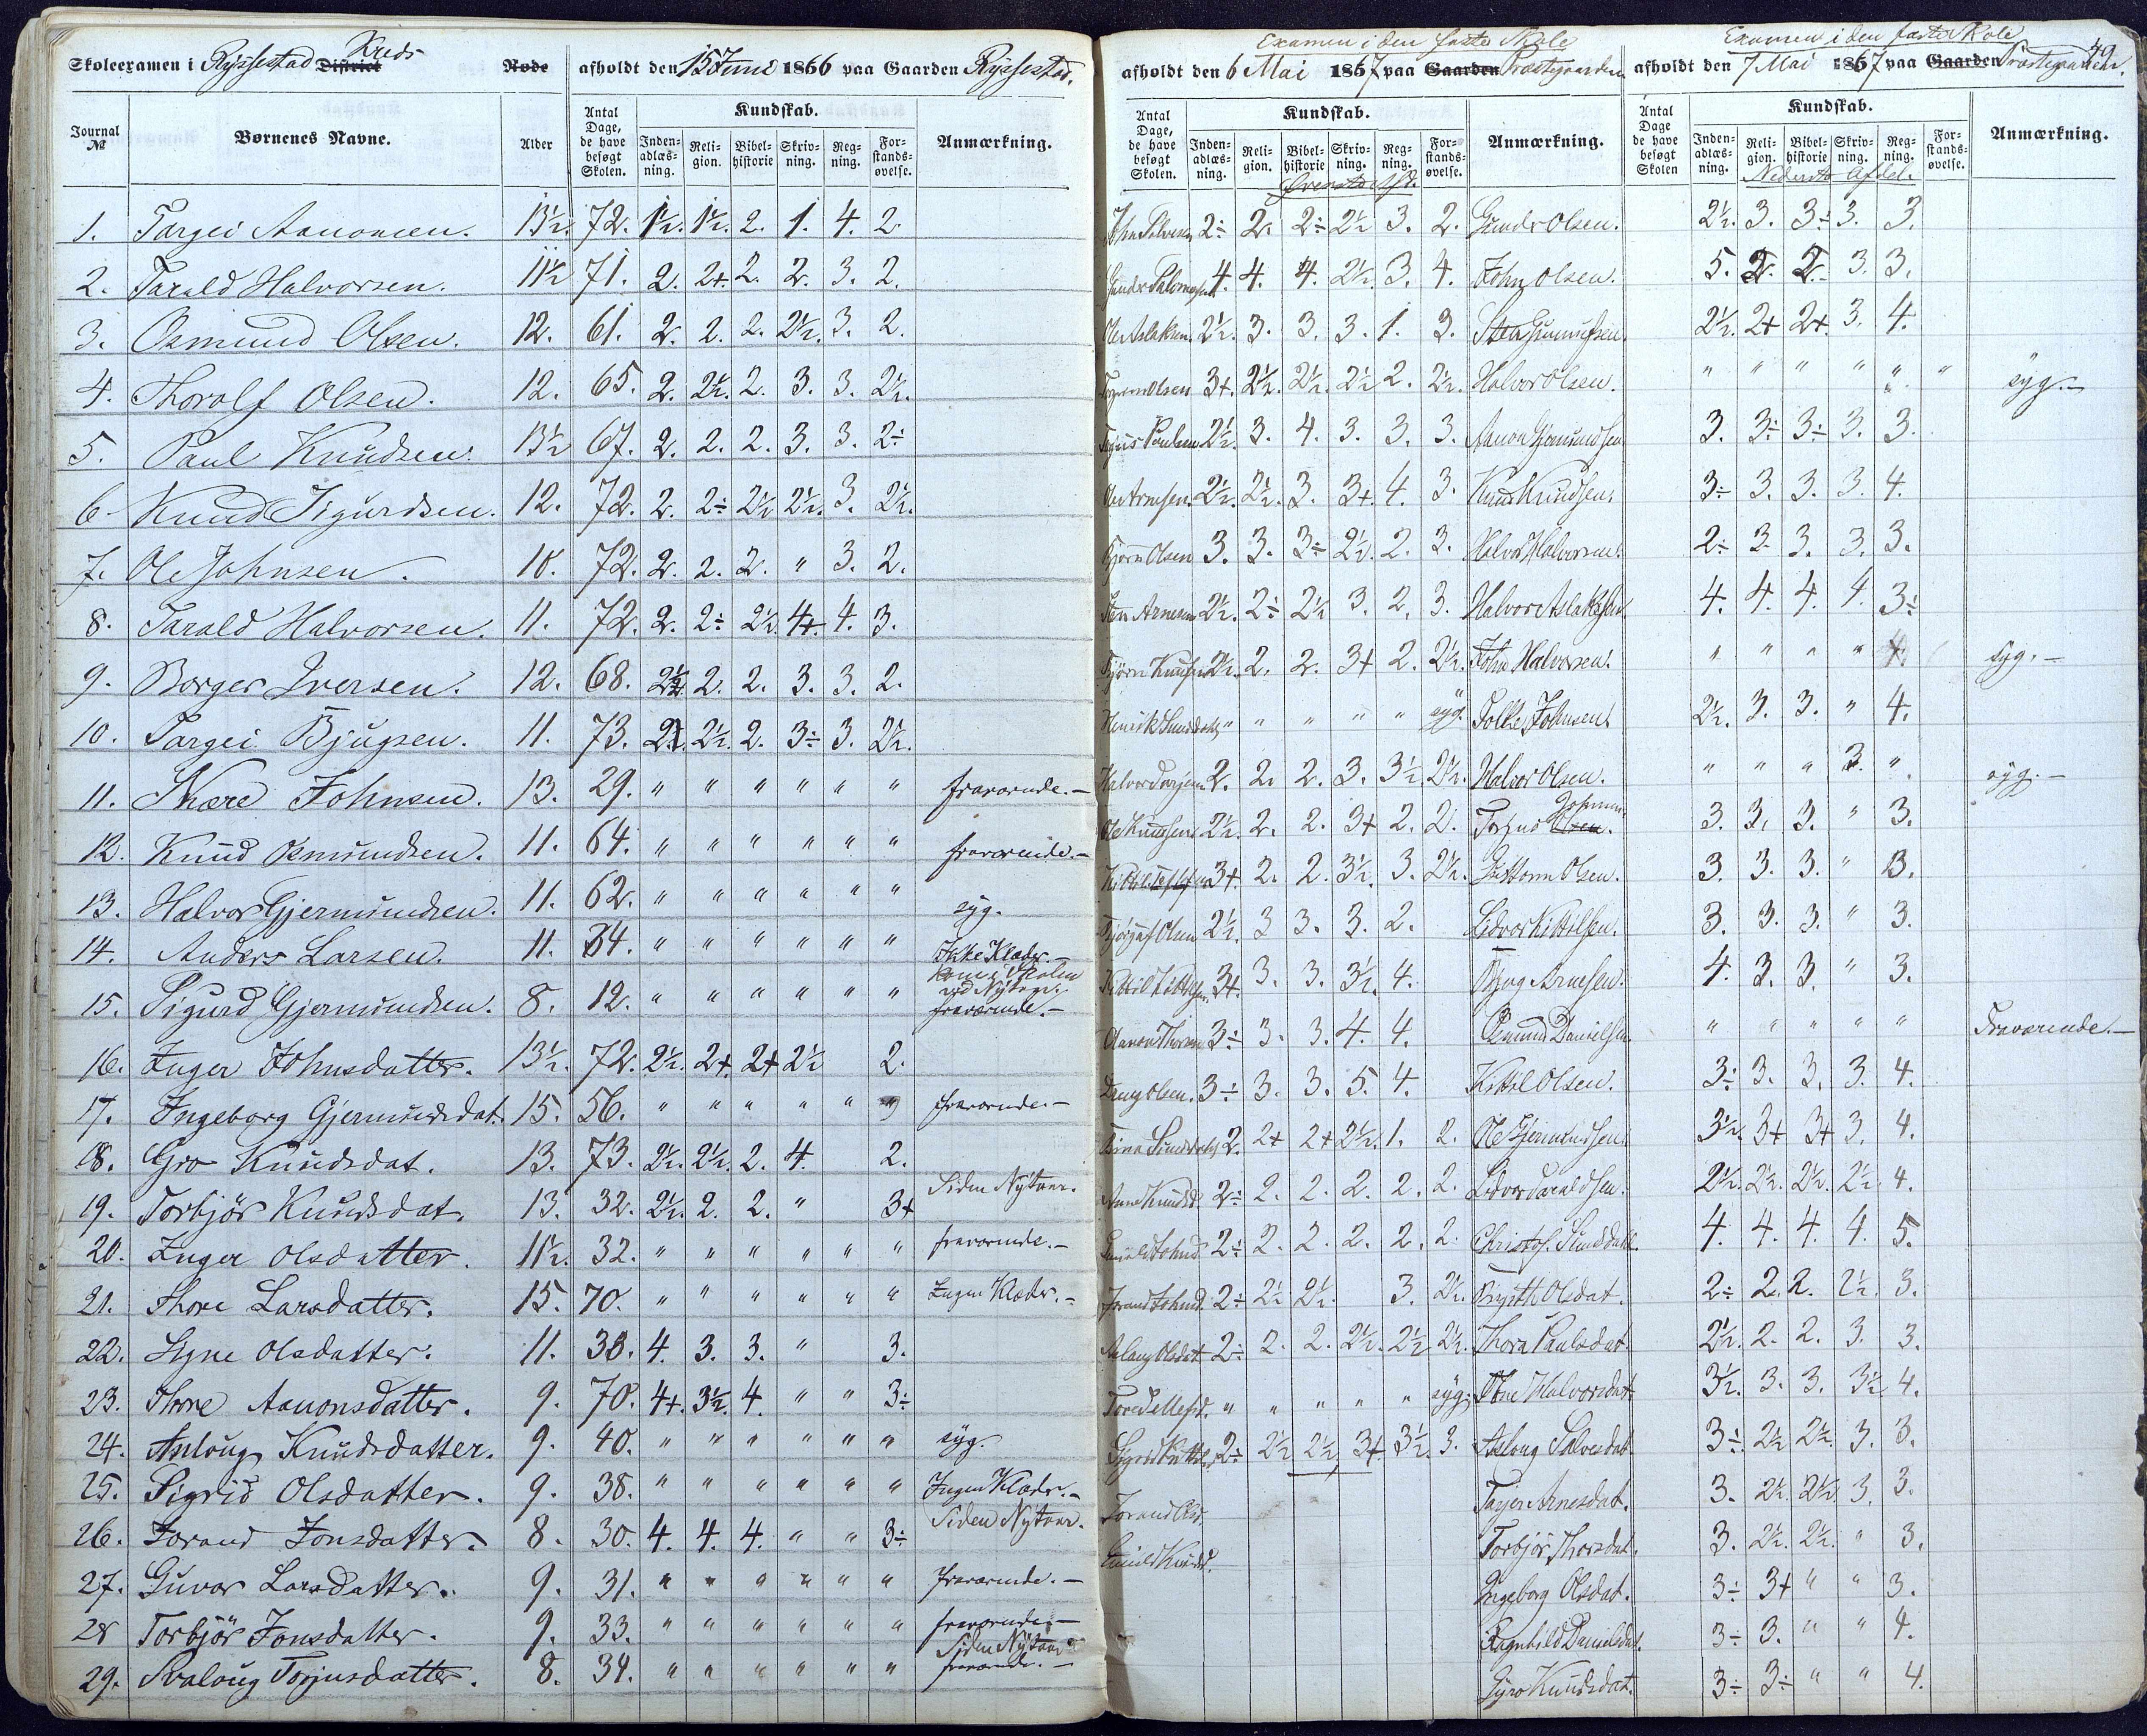 Skoleexamen i Ryssestad District Kreds Rode afholdt den 15 Juni 1866 paa Gaarden Ryssestad.
Journal № Børnenes Navne. Alder Antal Dage, de have besøgt Skolen. Kundskab. Inden-adlæs-ning. Reli-gion. Bibel-historie Skriv-ning. Reg-ning. For-stands-øvelse. Anmærkning.
1. Targei Aanonsen. 13½. 72. 1½. 1½. 2. 1. 4. 2.
2. Tarald Halvorsen. 11½ 71. 2. 2+. 2. 2. 3. 2.
3. Osmund Olsen. 12. 61. 2. 2. 2. 2½. 3. 2.
4. Thorolf Olsen. 12. 65. 2. 2½. 2. 3. 3. 2½.
5. Paul Knudsen. 13½ 67. 2. 2. 2. 3. 3. 2÷
6. Knud Sigurdsen. 12. 72. 2. 2÷ 2½ 2½. 3. 2½.
7. Ole Johnsen. 10. 72. 2. 2. 2. " 3. 2.
8. Tarald Halvorsen. 11. 72. 2. 2÷ 2½. 4+. 4. 3.
9. Borger Iversen. 12. 68. 2½. 2. 2. 3. 3. 2.
10. Targei Bjugsen. 11. 73. 2. 2½. 2. 3÷ 3. 2½.
11. Skære Johnsen. 13. 29. " " " " " " fraværende.–
12. Knud Osmundsen. 11. 64. " " " " " " fraværende.–
13. Halvor Gjermundsen. 11. 62. " " " " " " syg.
14. Anders Larsen. 11. 34. " " " " " " Ikke Klæder.–
15. Sigurd Gjermundsen. 8. 12. " " " " " " kom i Skolen ved Nytaar. fraværende.–
16. Inger Johnsdatter. 13½. 72. 2½. 2+. 2+ 2½ 2.
17. Ingeborg Gjermundsdat. 15. 56. " " " " " " fraværende.–
18. Gro Knudsdat. 13. 73. 2½. 2½. 2. 4. 2.
19. Torbjör Knudsdat. 13. 32. 2½. 2. 2. " 3+ Siden Nytaar.
20. Inger Olsdatter. 11½. 32. " " " " " " fraværende.–
21. Thore Larsdatter. 15. 70. " " " " " " Ingen Klæder.–
22. Signe Olsdatter. 11. 38. 4. 3. 3. " 3.
23. Thore Aanonsdatter. 9. 70. 4+. 3½. 4. " " 3÷
24. Aslaug Knudsdatter. 9. 40. " " " " " " syg.
25. Sigrid Olsdatter. 9. 38. " " " " " " Ingen Klæder.–
26. Jorand Jonsdatter. 8. 30. 4. 4. 4. " " 3÷ Siden Nytaar.
27. Guvor Larsdatter. 9. 31. " " " " " " fraværende.–
28 Torbjör Jonsdatter. 9. 33. " " " " " " fraværende.–
29. Svalaug Torjusdatter. 8. 34. " " " " " " Siden Nytaar fraværende.–
Examen i den faste Skole
afholdt den 6 Mai 1867 paa Gaarden Præstegaarden
Antal Dage, de have besøgt Skolen. Kundskab. Inden-adlæs-ning. Reli-gion. Bibel-historie Skriv-ning. Reg-ning. For-stands-øvelse. Anmærkning.
Øverste Afd.
2÷ 2. 2÷ 2½ 3. 2.
4. 4. 4. 2½. 3. 4.
Ole Aslaksen. 2½. 3. 3. 3. 1. 3.
3+. 2½. 2½. 2½ 2. 2½.
Tarjus Paulsen 2½. 3. 4. 3. 3. 3.
Ole Arnesen. 2½. 2½. 3. 3+. 4. 3.
Bjørn Olsen 3. 3. 3÷ 2½. 2. 3.
Sten Arnesen 2½. 2÷ 2½ 3. 2. 3.
Bjørn Knudsen 2½. 2. 2. 3+ 2. 2½.
Henrik Sunddahl " " " " " syg.
2. 2. 2. 3. 3½. 2½.
Ole Knudsen 2½. 2. 2. 3+ 2. 2.
3+. 2. 2. 3½. 3. 2½.
Olsen 2½. 3 3. 3. 2.
Kittil Kittilsen. 3+. 3. 3. 3½. 4.
Aanon 3÷ 3. 3. 4. 4.
Dreng Olsen. 3÷ 3. 3. 5. 4.
Sunddahl 2. 2+ 2+ 2½. 1. 2.
Anne Knudsd. 2÷ 2. 2. 2. 2. 2.
Gunild Johnsd. 2÷ 2. 2. 2. 2. 2.
Jorand Johnsd. 2÷ 2½ 2½. 3. 2½.
Aslaug Olsdat 2÷ 2. 2. 2½. 2½ 2½.
" " " " " syg.
Sigrid 2÷ 2½ 2½ 3+ 3½. 3.
Jorand Olsd.
Gunild Knudsd.
Examen i den faste Skole 49.
afholdt den 7 Mai 1867 paa Gaarden Præstegaarden.
Antal Dage de have besøgt Skolen Kundskab. Inden-adlæs-ning. Reli-gion. Bibel-historie Skriv-ning. Reg-ning. For-stands-øvelse. Anmærkning.
Nederste Afdel.
Gunder Olsen. 2½. 3. 3÷ 3. 3.
John Olsen. 5. 2. 2. 3. 3.
Sten Gunnufsen. 2½. 2+ 2+. 3. 4.
Halvor Olsen. " " " " " " syg.–
Aanon Gjermundsen 3. 3÷ 3÷ 3. 3.
Knud Knudsen. 3÷ 3. 3. 3. 4.
Halvor Halvorsen. 2÷ 3. 3. 3. 3.
Halvor Aslaksen. 4. 4. 4. 4. 3÷
John Halvorsen. " " " " syg.–
Folke Johnsen. 2½. 3. 3. " 4.
Halvor Olsen. " " " 3. " syg.–
Torjus Olsen. Johnsen 3. 3. 3. " 3.
Guttorm Olsen. 3. 3. 3. " 3.
Lidvor Kittilsen. 3. 3. 3. " 3.
Bjug Arnesen. 4. 3. 3. " 3.
Osmund Danielsen. " " " " " Fraværende.–
Kittil Olsen. 3÷ 3. 3. 3. 4.
Ole Gjermundsen 3½. 3+ 3+ 3. 4.
Lidvor Taraldsen. 2½. 2½. 2½. 2½. 4.
Christof. Sunddahl. 4. 4. 4. 4. 5.
Birgitte Olsdat. 2÷ 2. 2. 2½. 3.
Thora Paulsdat 2½. 2. 2. 3. 3.
Halvorsdat 3½. 3. 3. 3½ 4.
Aslaug Salvesdat 3÷ 2½ 2½. 3. 3.
Tarjer Arnesdat. 3. 2½. 2½ 3. 3.
Torbjör Thorsdat. 3. 2½. 2½. " 3.
Ingeborg Olsdat. 3÷ 3+ " " 3.
Ragnhild Danielsdat. 3÷ 3. " " 4.
Gyro Knudsdat. 3÷ 3÷ " " 4.